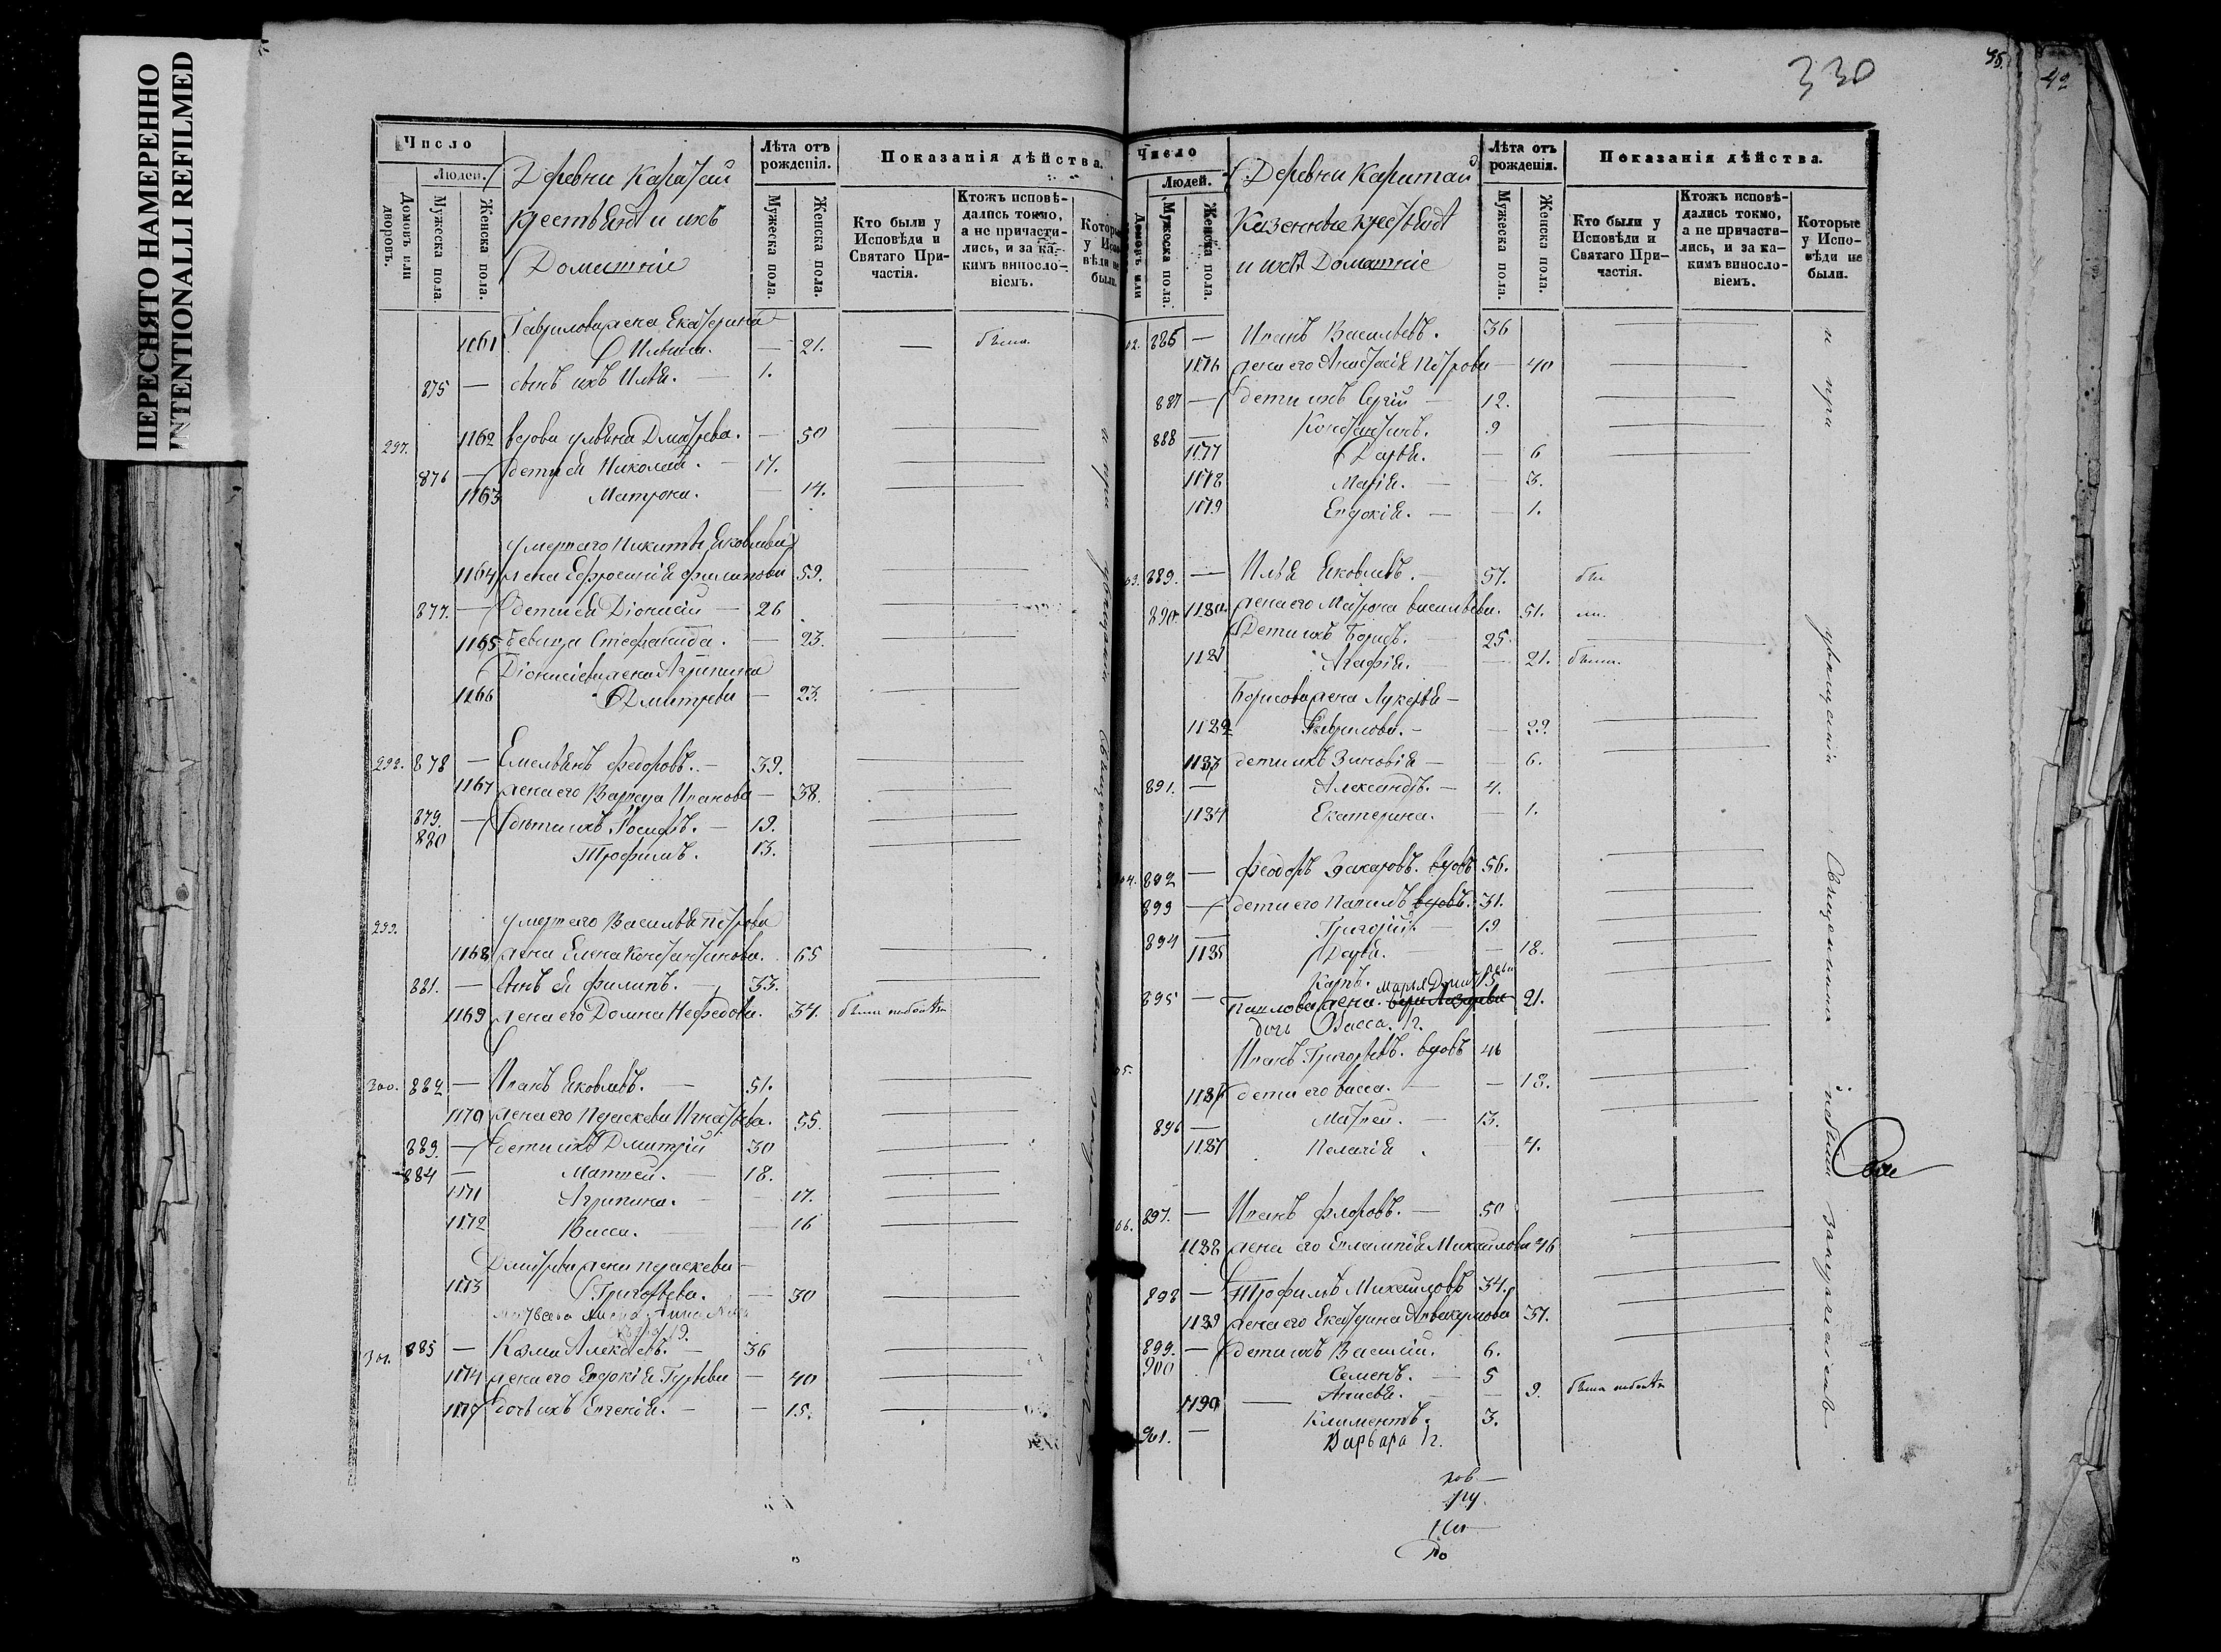 ПЕРЕСНЯТО НАМЕРЕННО
INTENTIONALLI REFILMED
Число
Людей.
Домовъ или дворовъ.
Мужеска пола.
Женска пола.
Деревни Каратай
крестьяня и ихъ
Домашніе
Лѣта отъ рожденія.
Мужеска пола.
Женска пола.
Показанія дѣйства.
Кто были у Исповѣди и Святаго Причастія.
Ктожъ исповѣдались токмо, а не причастились, и за какимъ винословіемъ.
Которые у Исповѣди не были.
Гаврилова жена Екатерина
1161 Ильина. — 21. — была
875 — сынъ ихъ Илья. — 1.
297. 1162 вдова Ульяна Дмитрева. — 50
876 — дети ея Николай. — 17.
1163 Матрона. — 14.
умершаго Никиты Яковлева
1164 жена Ефросинія Филипова 59.
877. — дети ея Діонисій — 26
1165 девица Стефанида. — 23.
Діонисіева жена Агрипина
1166 Дмитрева — 23.
298. 878 — Емельянъ Федоровъ. — 39.
1167 жена его Варвара Иванова — 38.
879. — дѣти ихъ Іосифъ. — 19.
880 Трофимъ. 13.
299. умершаго Василья Петрова
1168 жена Елена Константинова. 65
881. — сынъ ея Филипъ. — 33.
1169 жена его Домна Нефедова. 34. была
300. 882 — Иванъ Яковлевъ. — 51.
1170 жена его Параскева Игнатьева. 55.
883. — дети ихъ Дмитрій 30
884 — Матвей. — 18.
1171 Агрипина. — 17.
1172 Васса. — 16
Дмитрева жена параскева
1173 Григорьева. — 30
Матвеева жена Анна
19.
301. 885 — Козма Алексеевъ. — 36
1174 жена его Евдокія Гурьева — 40
дочь ихъ Евгенія. — 15.
330
42
Число
Людей.
Домовъ или
Мужеска пола.
Женска пола.
Деревни Каритай
Казенные крестьяня
и ихъ Домашніе
Лѣта отъ рожденія.
Мужеска пола.
Женска пола.
Показанія дѣйства.
Кто были у Исповѣди и Святаго Причастія.
Ктожъ исповѣдались токмо, а не причастились, и за какимъ винословіемъ.
Которые у Исповѣди не были.
02. 886 — Иванъ Васильевъ. 36
1176 жена его Анастасія Петрова — 40
887 — дети ихъ Сергій — 12.
888 — Константинъ. 9
1177 Дарья. — 6
1178 Марія. — 3.
1179 Евдокія. — 1.
03. 889. — Илья Яковлевъ. — 57.
890 1180 жена его Матрона васильева. 51.
Дети ихъ Борисъ. — 25.
1181 Агафія. — 21. была.
Борисова жена Лукерья —
1182 Гаврилова. — 29.
1183 дети ихъ Зиновія — 6.
891. — Александръ. — 4.
1184 Екатерина. — 1.
04. 892 — Феодоръ Захаровъ. вдовъ 56.
893 — дети его Павелъ вдовъ. 31.
894 — Григорій. — 19
1185 Дарья. — 18.
895 — Карпъ. 15
Павлова жена. Марья 21.
дочь Васса. 1 г.
05. Иванъ Григорьевъ. вдовъ 46
1186 дети его васса. — 18.
896 — Матвей. — 13.
1187 Пелагія — 4.
06. 897. — Иванъ Флоровъ. — 50
1188 жена его Евлампія Михаилова 46
898 — Трофимъ Михаиловъ 34.
1189 жена его Екатерина Аввакумова 37.
899. — дети ихъ Василій. 6.
900 Семенъ. — 5
1190 — Анисья. — 9. была
901. — Климентъ. 3.
Варвара 1 г.